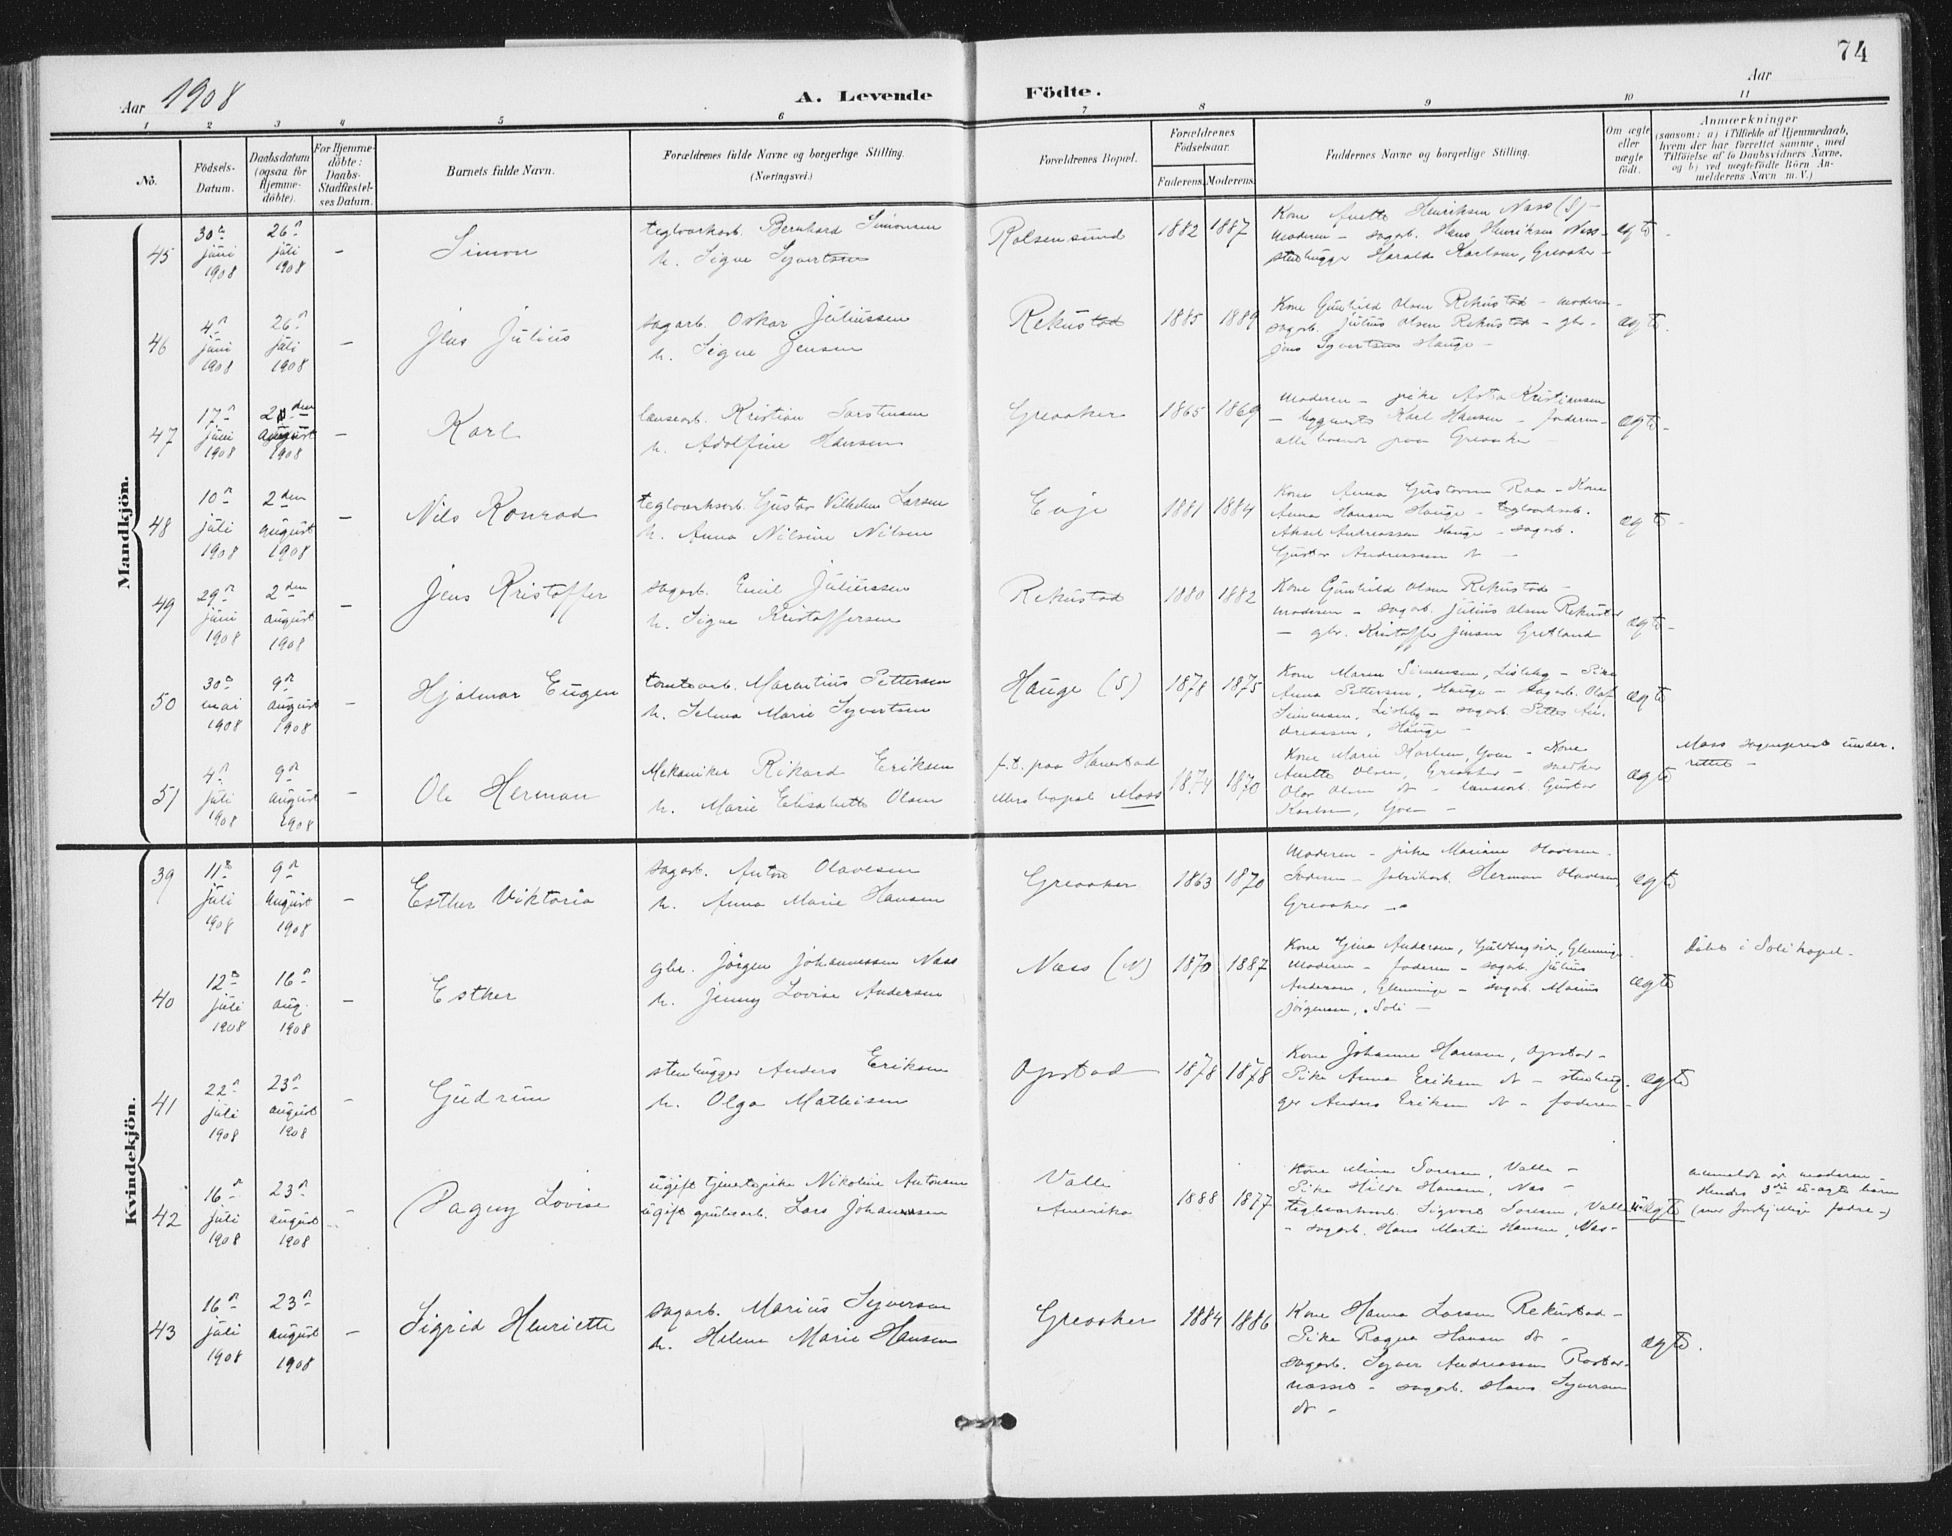 74
Aar 1908
A. Levende Födte.
Aar
1 2 3 4 5 6 7 8 9 10 11
No.
Födsels-Datum.
Daabsdatum (ogsaa for Hjemme-döbte).
For Hjemme-döbte: Daabs-Stadfæstel-ses Datum.
Barnets fulde Navn.
Forældrenes fulde Navne og borgerlige Stilling. (Næringsvei.)
Forældrenes Bopæl.
Forældrenes Födselsaar.
Faderens. Moderens.
Faddernes Navne og borgerlige Stilling.
Om ægte eller uægte födt.
Anmærkninger
(saasom: a) i Tilfælde af Hjemmedaab,
hvem der har forrettet samme, med
Tilföielse af to Daabsvidners Navne,
og b) ved uegtefödte Börn An-
melderens Navn m. V.)
Mandkjön.
45 30 juni 1908 26 juli 1908 – Simon
teglverkarb. Bernhard Simonsen
h. Signe Syvertsen
Rolsensund 1882 1887
Kone Anette Henriksen Næss (S) –
moderen – sagarb. Hans Henriksen Næss –
stenhugger Harald Karlsen, Greaaker –
ægte –
46 4 juni 1908 26 juli 1908 – Jens Julius
sagarb. Oskar Juliussen
h. Signe Jensen
Rekustad 1885 1889
Kone Gunhild Olsen Rekustad – moderen –
sagarb. Julius Olsen Rekustad – gbr.
Jens Syvertsen Hauge –
ægte.
47 17 juni 1908 2den august 1908 – Karl
lænsearb. Kristian Torstensen
h. Adolfine Hansen
Greaaker 1865 1869
moderen – pike Asta Kristiansen
– Karl Hansen – faderen –
alle boende paa Greaaker
ægte –
48 10 juli 1908 2den august 1908 – Nils Konrad
teglverksarb. Gustav Vilhelm Larsen
h. Anna Nilsine Nilsen
Evje 1881 1884
Kone Anna Gustavsen Raa – Kone
Anna Hansen Hauge – teglverksarb.
Aksel Andreassen Hauge – sagarb.
Gustav Andreassen
ægte –
49 29 juni 1908 2den august 1908 – Jens Kristoffer
sagarb. Emil Juliussen
h. Signe Kristoffersen
Rekustad 1880 1882
Kone Gunhild Olsen Rekustad –
moderen – sagarb. Julius Olsen Rekustad
– gbr. Kristoffer Jensen Gretland
ægte –
50 30 mai 1908 9 august 1908 – Hjalmar Eugen
tomtearb. Marentius Pettersen
h. Selma Marie Syvertsen
Hauge (S) 1878 1875
Kone Maren Simensen, Lisleby – Pike
Anna Pettersen, Hauge – sagarb. Olaf
Simensen, Lisleby – sagarb. Petter An-
dreassen, Hauge –
ægte
51 4 juli 1908 9 august 1908 – Ole Herman
Mekaniker Rikard Eriksen
h. Marie Elisabeth Olsen
f.t. paa Hanestad
ellers bopæl Moss 1874 1870
Kone Marie Karlsen, – Kone
Anette Olsen, Greaaker – snekker
Olav Olsen – lænsearb. Gustav
Karlsen, –
ægte
Moss sogneprest under-
rettet –
Kvindekjön.
39 11 juli 1908 9 august 1908 – Esther Viktoria
sagarb. Anton Olavesen
h. Anna Marie Hansen
Greaaker 1863 1870
Moderen – pike Mariane Olavesen –
Faderen – fabrikarb. Herman Olavesen,
Greaaker –
ægte
40 12 juli 1908 16 aug. 1908 – Esther
gbr. Jörgen Johannessen Næss
h. Jenny Lovise Andersen
Næss (N) 1870 1887
Kone Gina Andersen, Guldbergsid, Glemminge –
moderen – faderen – sagarb. Julius
Andersen, Glemminge – sagarb. Marius
Jörgensen, Soli –
ægte
Döbt i Soli kapel –
41 22 juli 1908 23 august 1908 – Gudrun
stenhugger Anders Eriksen
h. Olga Mathisen
Opstad 1878 1878
Kone Johanne Hansen, Opstad –
Pike Anna Eriksen – stenhug-
ger Anders Eriksen – faderen –
ægte
42 16 juli 1908 23 august 1908 – Dagny Lovise
ugift tjenestepike Nikoline Antonsen
ugift grubearb. Lars Johannessen
Valle
Amerika 1888 1877
Kone Mina Toresen, Valle –
Pike Hilda Hansen, Næs –
teglverkarb. Sigvart Toresen, Valle
– sagarb. Hans Martin Hansen, Næs –
uægte
anmeldt av moderen –
Hendes 3die u-ægte barn
(med forskjellige fædre –)
43 16 juli 1908 23 august 1908 – Sigrid Henriette
sagarb. Marius Syversen
h. Helene Marie Hansen
Greaaker 1884 1886
Kone Hanna Larsen Rekustad –
Pike Ragna Hansen –
sagarb. Syver Andreassen
– sagarb. Hans Syversen
ægte.